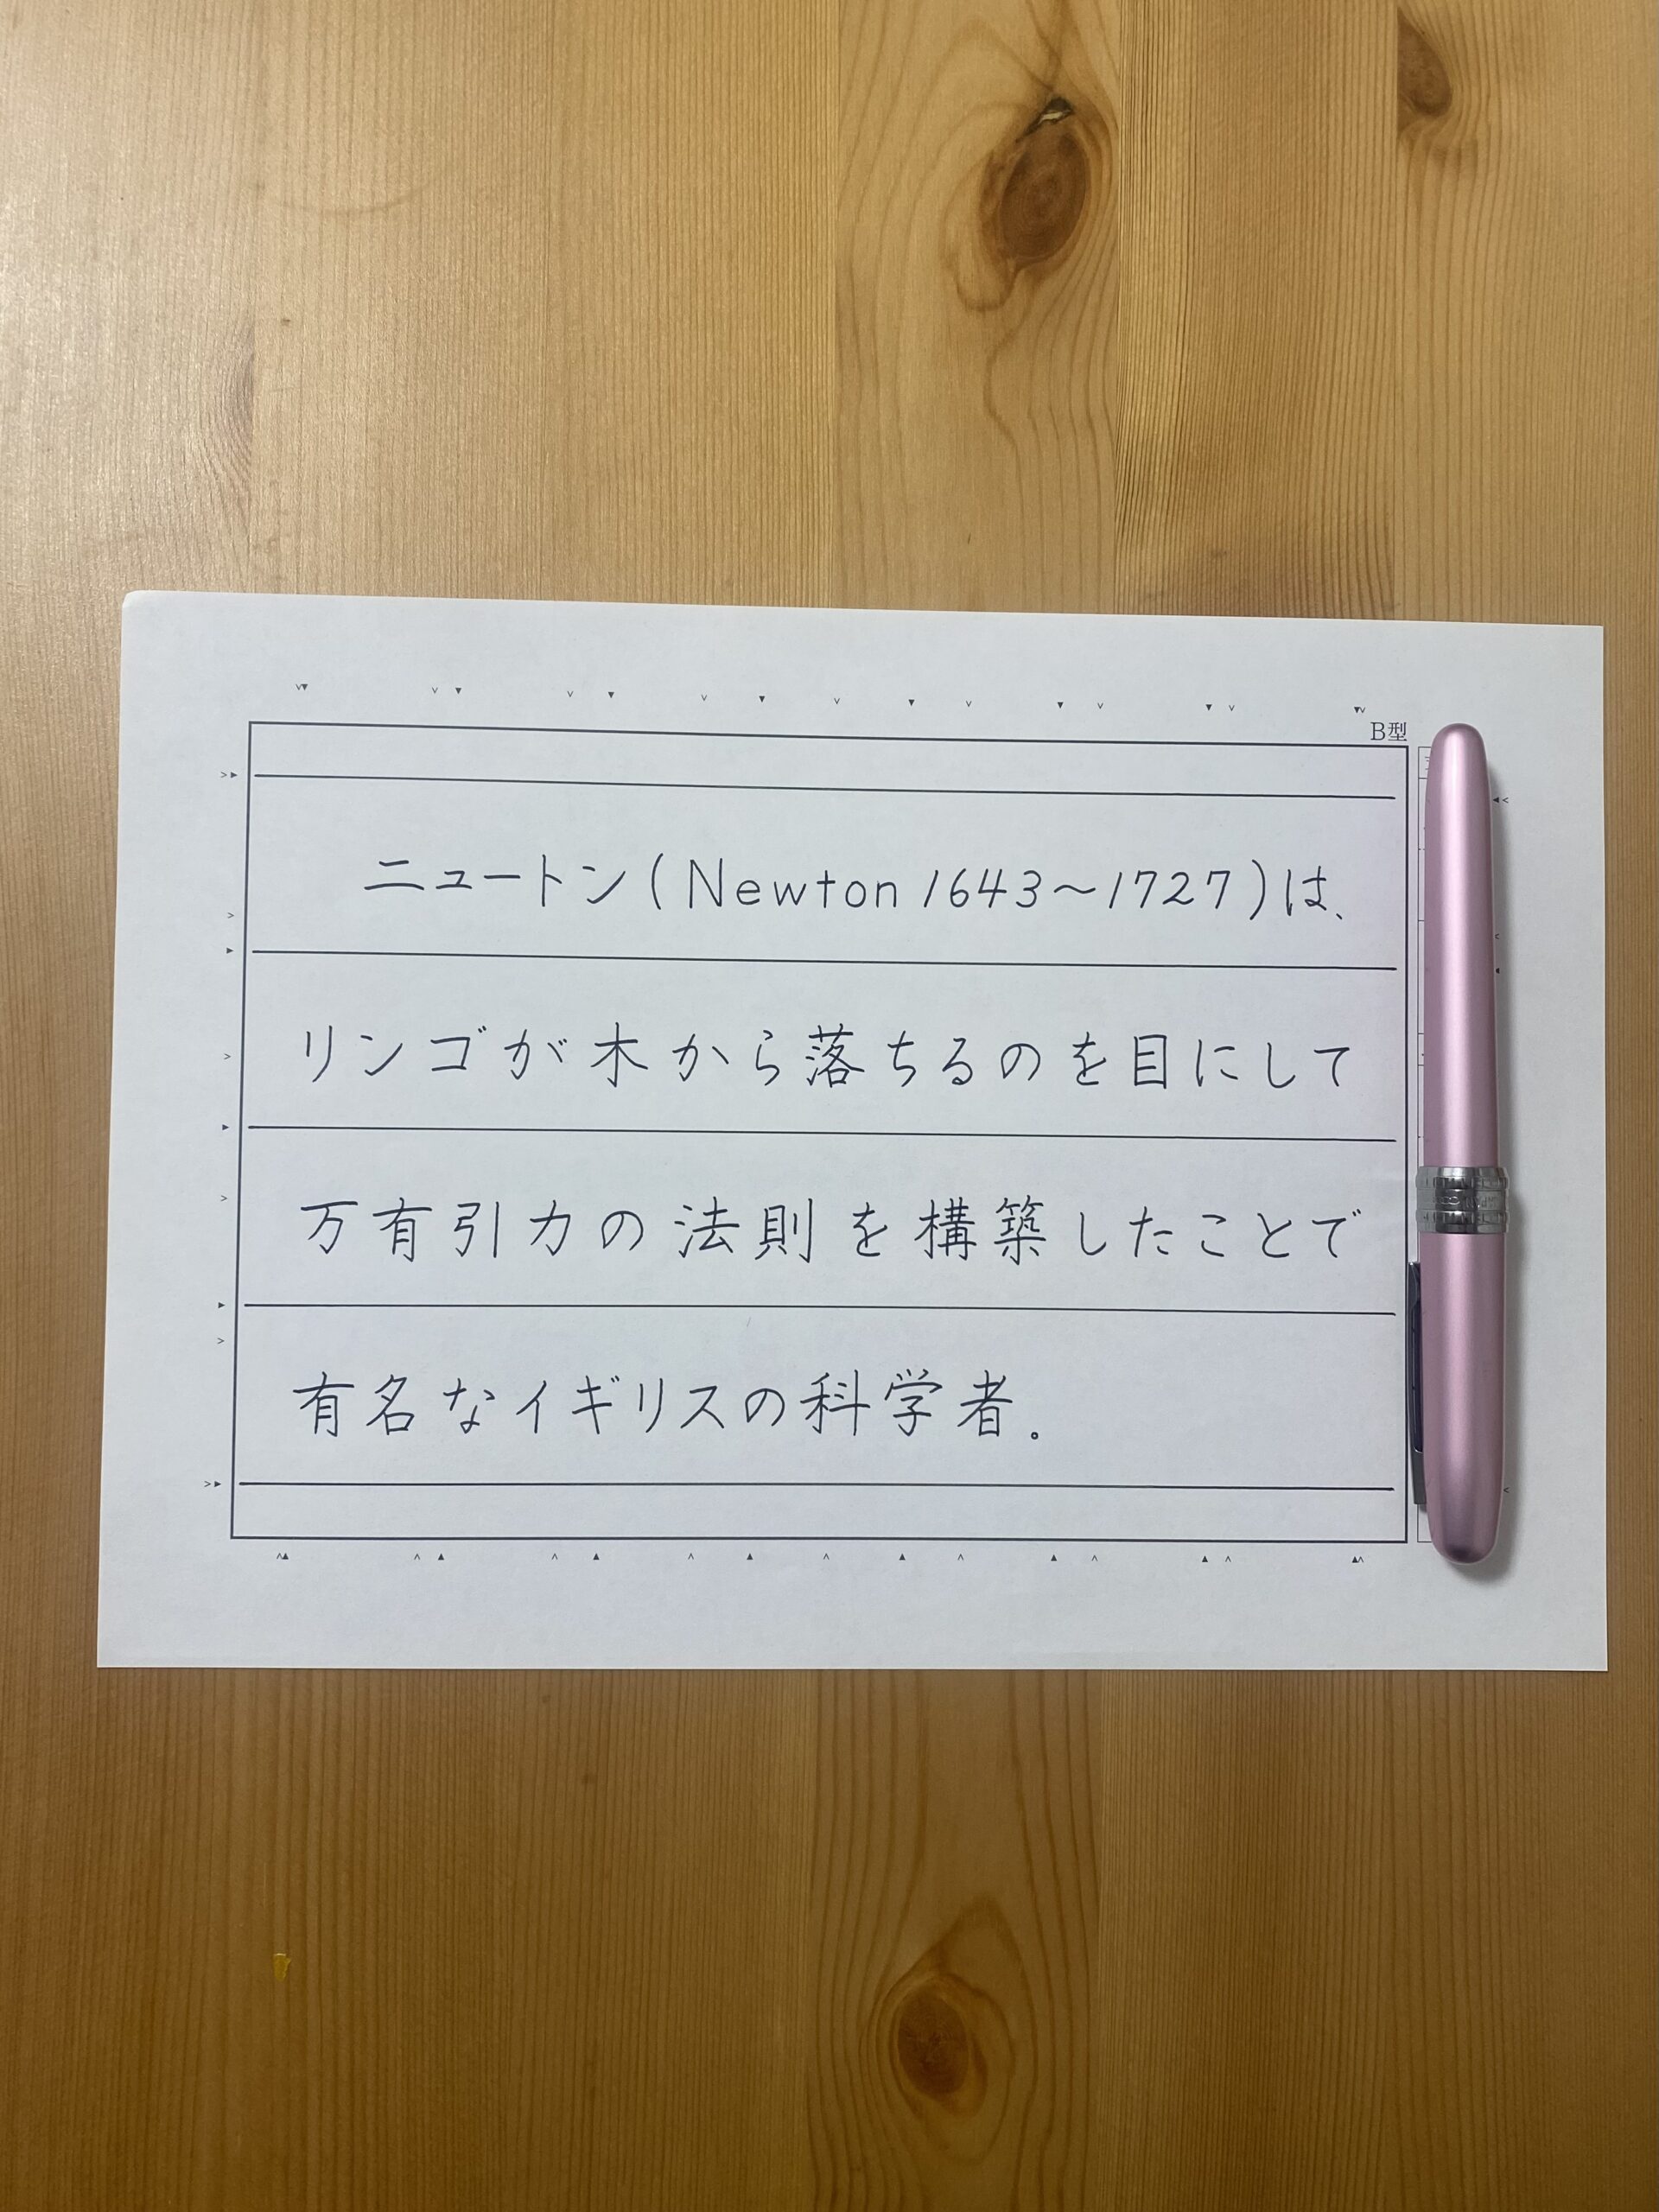 B型
ニュートン(Newton 1643〜1727)は、
リンゴが木から落ちるのを目にして
万有引力の法則を構築したことで
有名なイギリスの科学者。